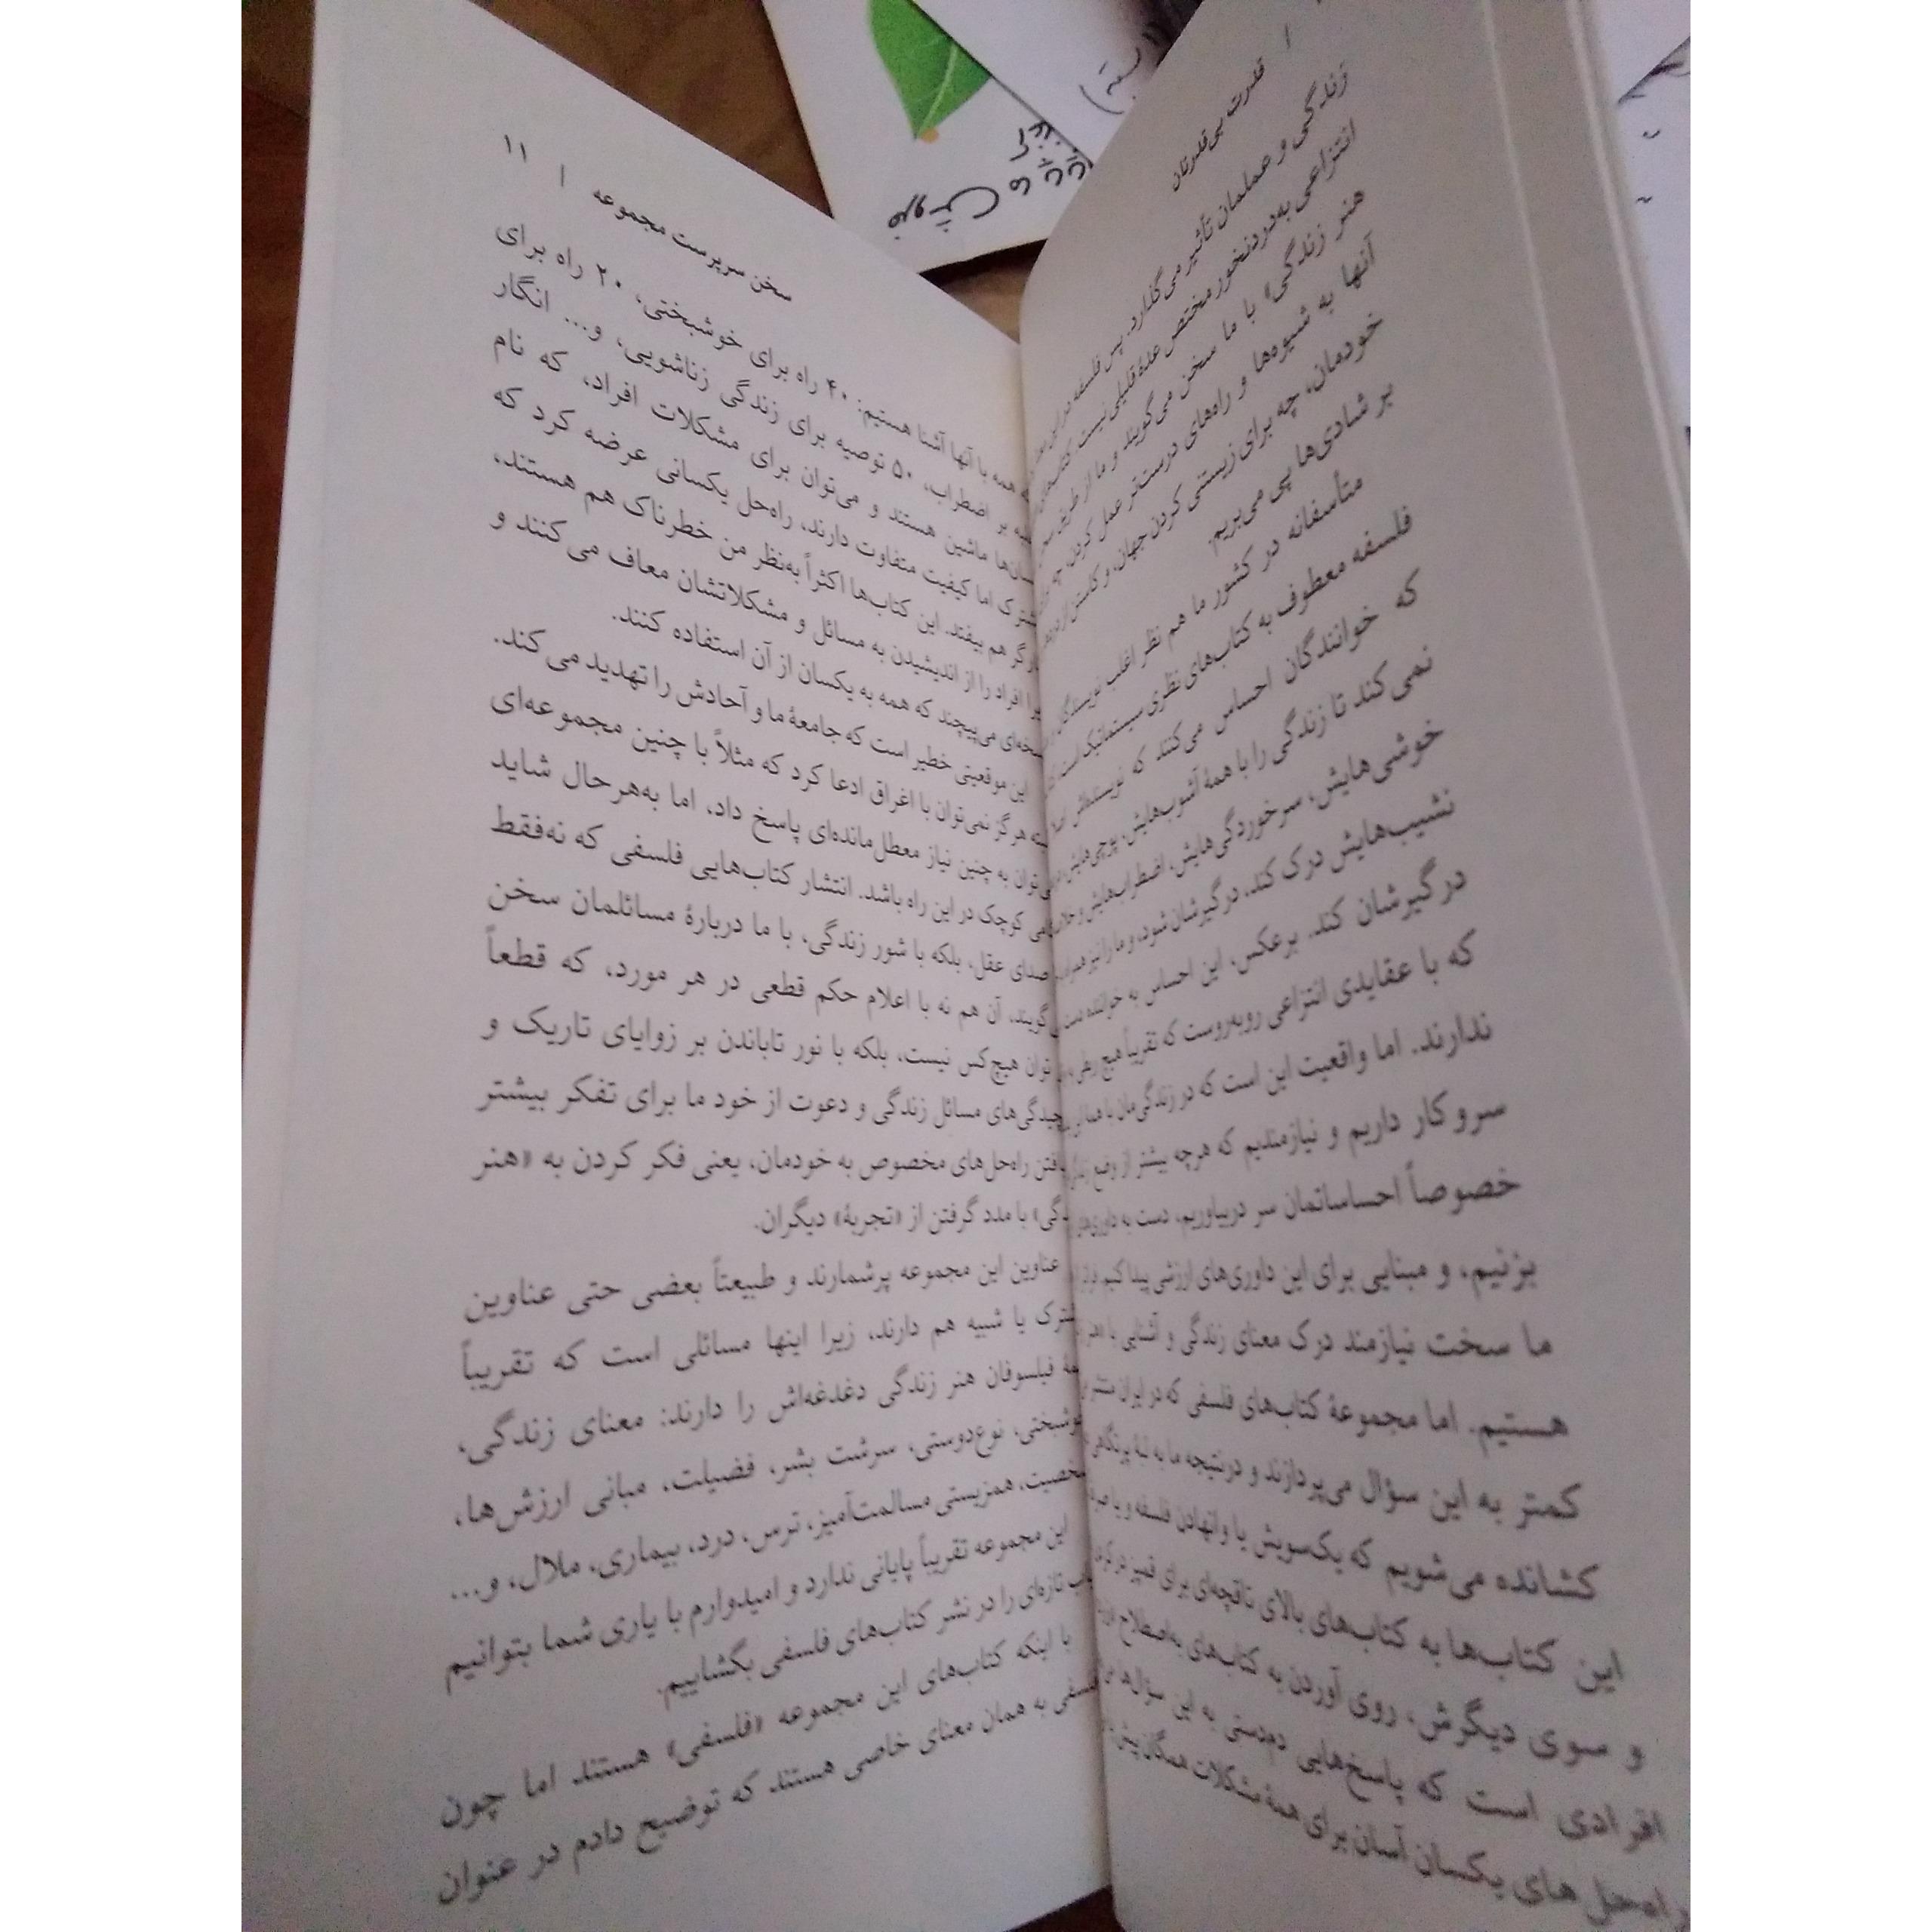 قدرت بی‌قدرتان
زندگی و عملمان تأثیر می‌گذارد. پس فلسفه
انتزاعی به‌دردنخور مختص عدهٔ قلیلی نیست.
هنر زندگی» با ما سخن می‌گویند و ما از طریق
آنها به شیوه‌ها و راه‌های درست‌تر عمل کردن، چه
خودمان، چه برای زیستنی کردن جهان، و کاستن از
بر شادی‌ها پی می‌بریم.
متأسفانه در کشور ما هم نظر اغلب نویسندگان
فلسفه معطوف به کتاب‌های نظری سیستماتیک است
که خوانندگان احساس می‌کنند که نویسنده‌اش اصلا
نمی‌کند تا زندگی را با همهٔ آشوب‌هایش، پوچی‌هایش،
خوشی‌هایش، سرخوردگی‌هایش، اضطراب‌هایش و
نشیب‌هایش درک کند، درگیرشان شود، و ما را نیز همراه
درگیرشان کند. برعکس، این احساس به خواننده دست
که با عقایدی انتزاعی روبه‌روست که تقریباً هیچ ربطی
ندارند. اما واقعیت این است که در زندگی‌مان با
سروکار داریم و نیازمندیم که هرچه بیشتر از وضع
خصوصاً احساساتمان سر دربیاوریم، دست به داوری‌های
بزنیم، و مبنایی برای این داوری‌های ارزشی پیدا کنیم.
ما سخت نیازمند درک معنای زندگی و آشنایی با «هنر
هستیم. اما مجموعهٔ کتاب‌های فلسفی که در ایران منتشر
کمتر به این سؤال می‌پردازند و درنتیجه ما به لبهٔ پرتگاهی
کشانده می‌شویم که یک‌سویش یا وانهادن فلسفه و یا صرفا
این کتاب‌ها به کتاب‌های بالای تاقچه‌ای برای قمپز در کردن
و سوی دیگرش، روی آوردن به کتاب‌های به‌اصطلاح
افرادی است که پاسخ‌هایی دم‌دستی به این سؤال‌ها
راه‌حل‌های یکسان آسان برای همهٔ مشکلات همگان پیش
سخن سرپرست مجموعه | ۱۱
همه با آنها آشنا هستیم: ۴۰ راه برای خوشبختی، ۲۰ راه برای
بر اضطراب، ۵۰ توصیه برای زندگی زناشویی، و... انگار
ماشین هستند و می‌توان برای مشکلات افراد، که نام
اما کیفیت متفاوت دارند، راه‌حل یکسانی عرضه کرد که
هم بیفتد. این کتاب‌ها اکثراً به‌نظر من خطرناک هم هستند،
افراد را از اندیشیدن به مسائل و مشکلاتشان معاف می‌کنند و
می‌پیچند که همه به یکسان از آن استفاده کنند.
این موقعیتی خطیر است که جامعهٔ ما و آحادش را تهدید می‌کند.
هرگز نمی‌توان با اغراق ادعا کرد که مثلاً با چنین مجموعه‌ای
توان به چنین نیاز معطل‌مانده‌ای پاسخ داد، اما به‌هرحال شاید
کوچک در این راه باشد. انتشار کتاب‌هایی فلسفی که نه‌فقط
صدای عقل، بلکه با شور زندگی، با ما دربارهٔ مسائلمان سخن
گویند، آن هم نه با اعلام حکم قطعی در هر مورد، که قطعاً
توان هیچ‌کس نیست، بلکه با نور تاباندن بر زوایای تاریک و
چیدگی‌های مسائل زندگی و دعوت از خود ما برای تفکر بیشتر
افتن راه‌حل‌های مخصوص به خودمان، یعنی فکر کردن به «هنر
دگی» با مدد گرفتن از «تجربهٔ» دیگران.
عناوین این مجموعه پرشمارند و طبیعتاً بعضی حتی عناوین
شترک یا شبیه هم دارند، زیرا اینها مسائلی است که تقریباً
مهٔ فیلسوفان هنر زندگی دغدغه‌اش را دارند: معنای زندگی،
وشبختی، نوع‌دوستی، سرشت بشر، فضیلت، مبانی ارزش‌ها،
خصیت، همزیستی مسالمت‌آمیز، ترس، درد، بیماری، ملال، و...
این مجموعه تقریباً پایانی ندارد و امیدوارم با یاری شما بتوانیم
اب تازه‌ای را در نشر کتاب‌های فلسفی بگشاییم.
با اینکه کتاب‌های این مجموعه «فلسفی» هستند اما چون
فلسفی به همان معنای خاصی هستند که توضیح دادم در عنوان